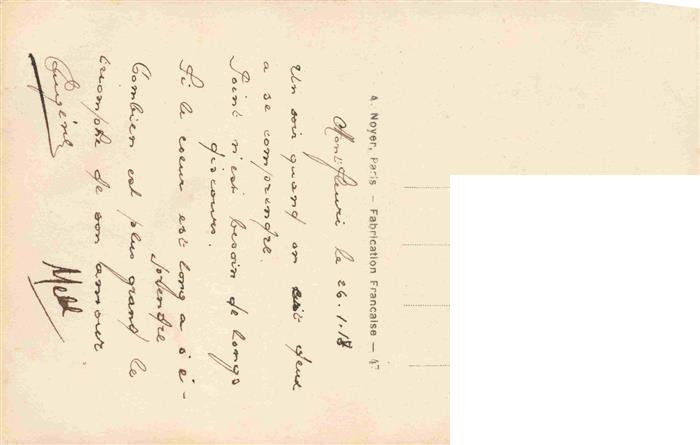 A. Noyer, Paris — Fabrication Francaise — 47
Montfleuri le 26.1.18
Un soir quand on est deux
a se comprendre
Point n'est besoin de longs
discours.
Si le coeur est long a s'é-
Combien est plus grand le
triomphe de son amour
Eugène